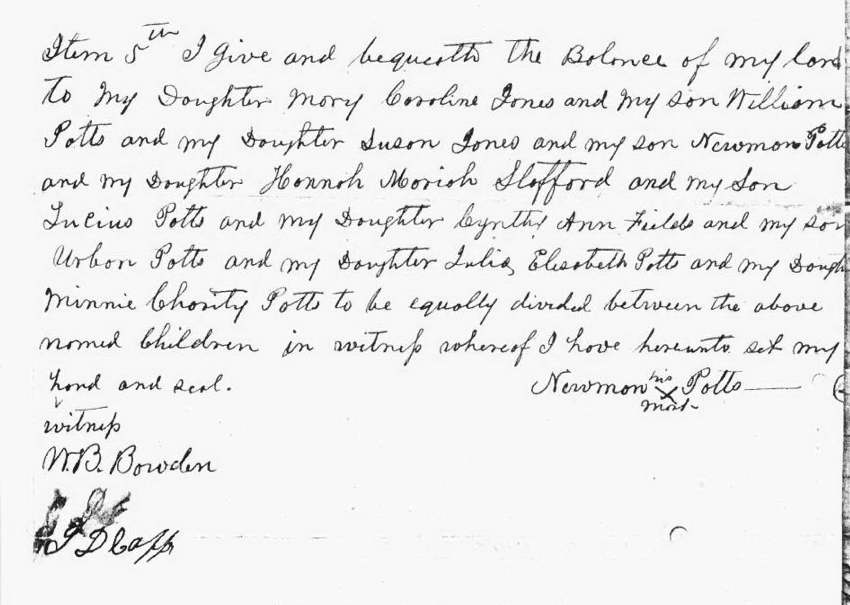 Item 5th I give and bequeath the Balance of my land
to my Daughter Mary Caroline Jones and my son William
Potts and my Daughter Susan Jones and my son Newman Potts
and my Daughter Hannah Moriah Stafford and my Son
Lucius Potts and my Daughter Cynthy Ann Fields and my son
Urban Potts and my Daughter Julia Elisabeth Potts and my Daugh
Minnie Charity Potts to be equally divided between the above
named Children in witness whereof I have hereunto set my
hand and seal. Newman his X mark Potts
witness
W. B. Bowden
J D Capp